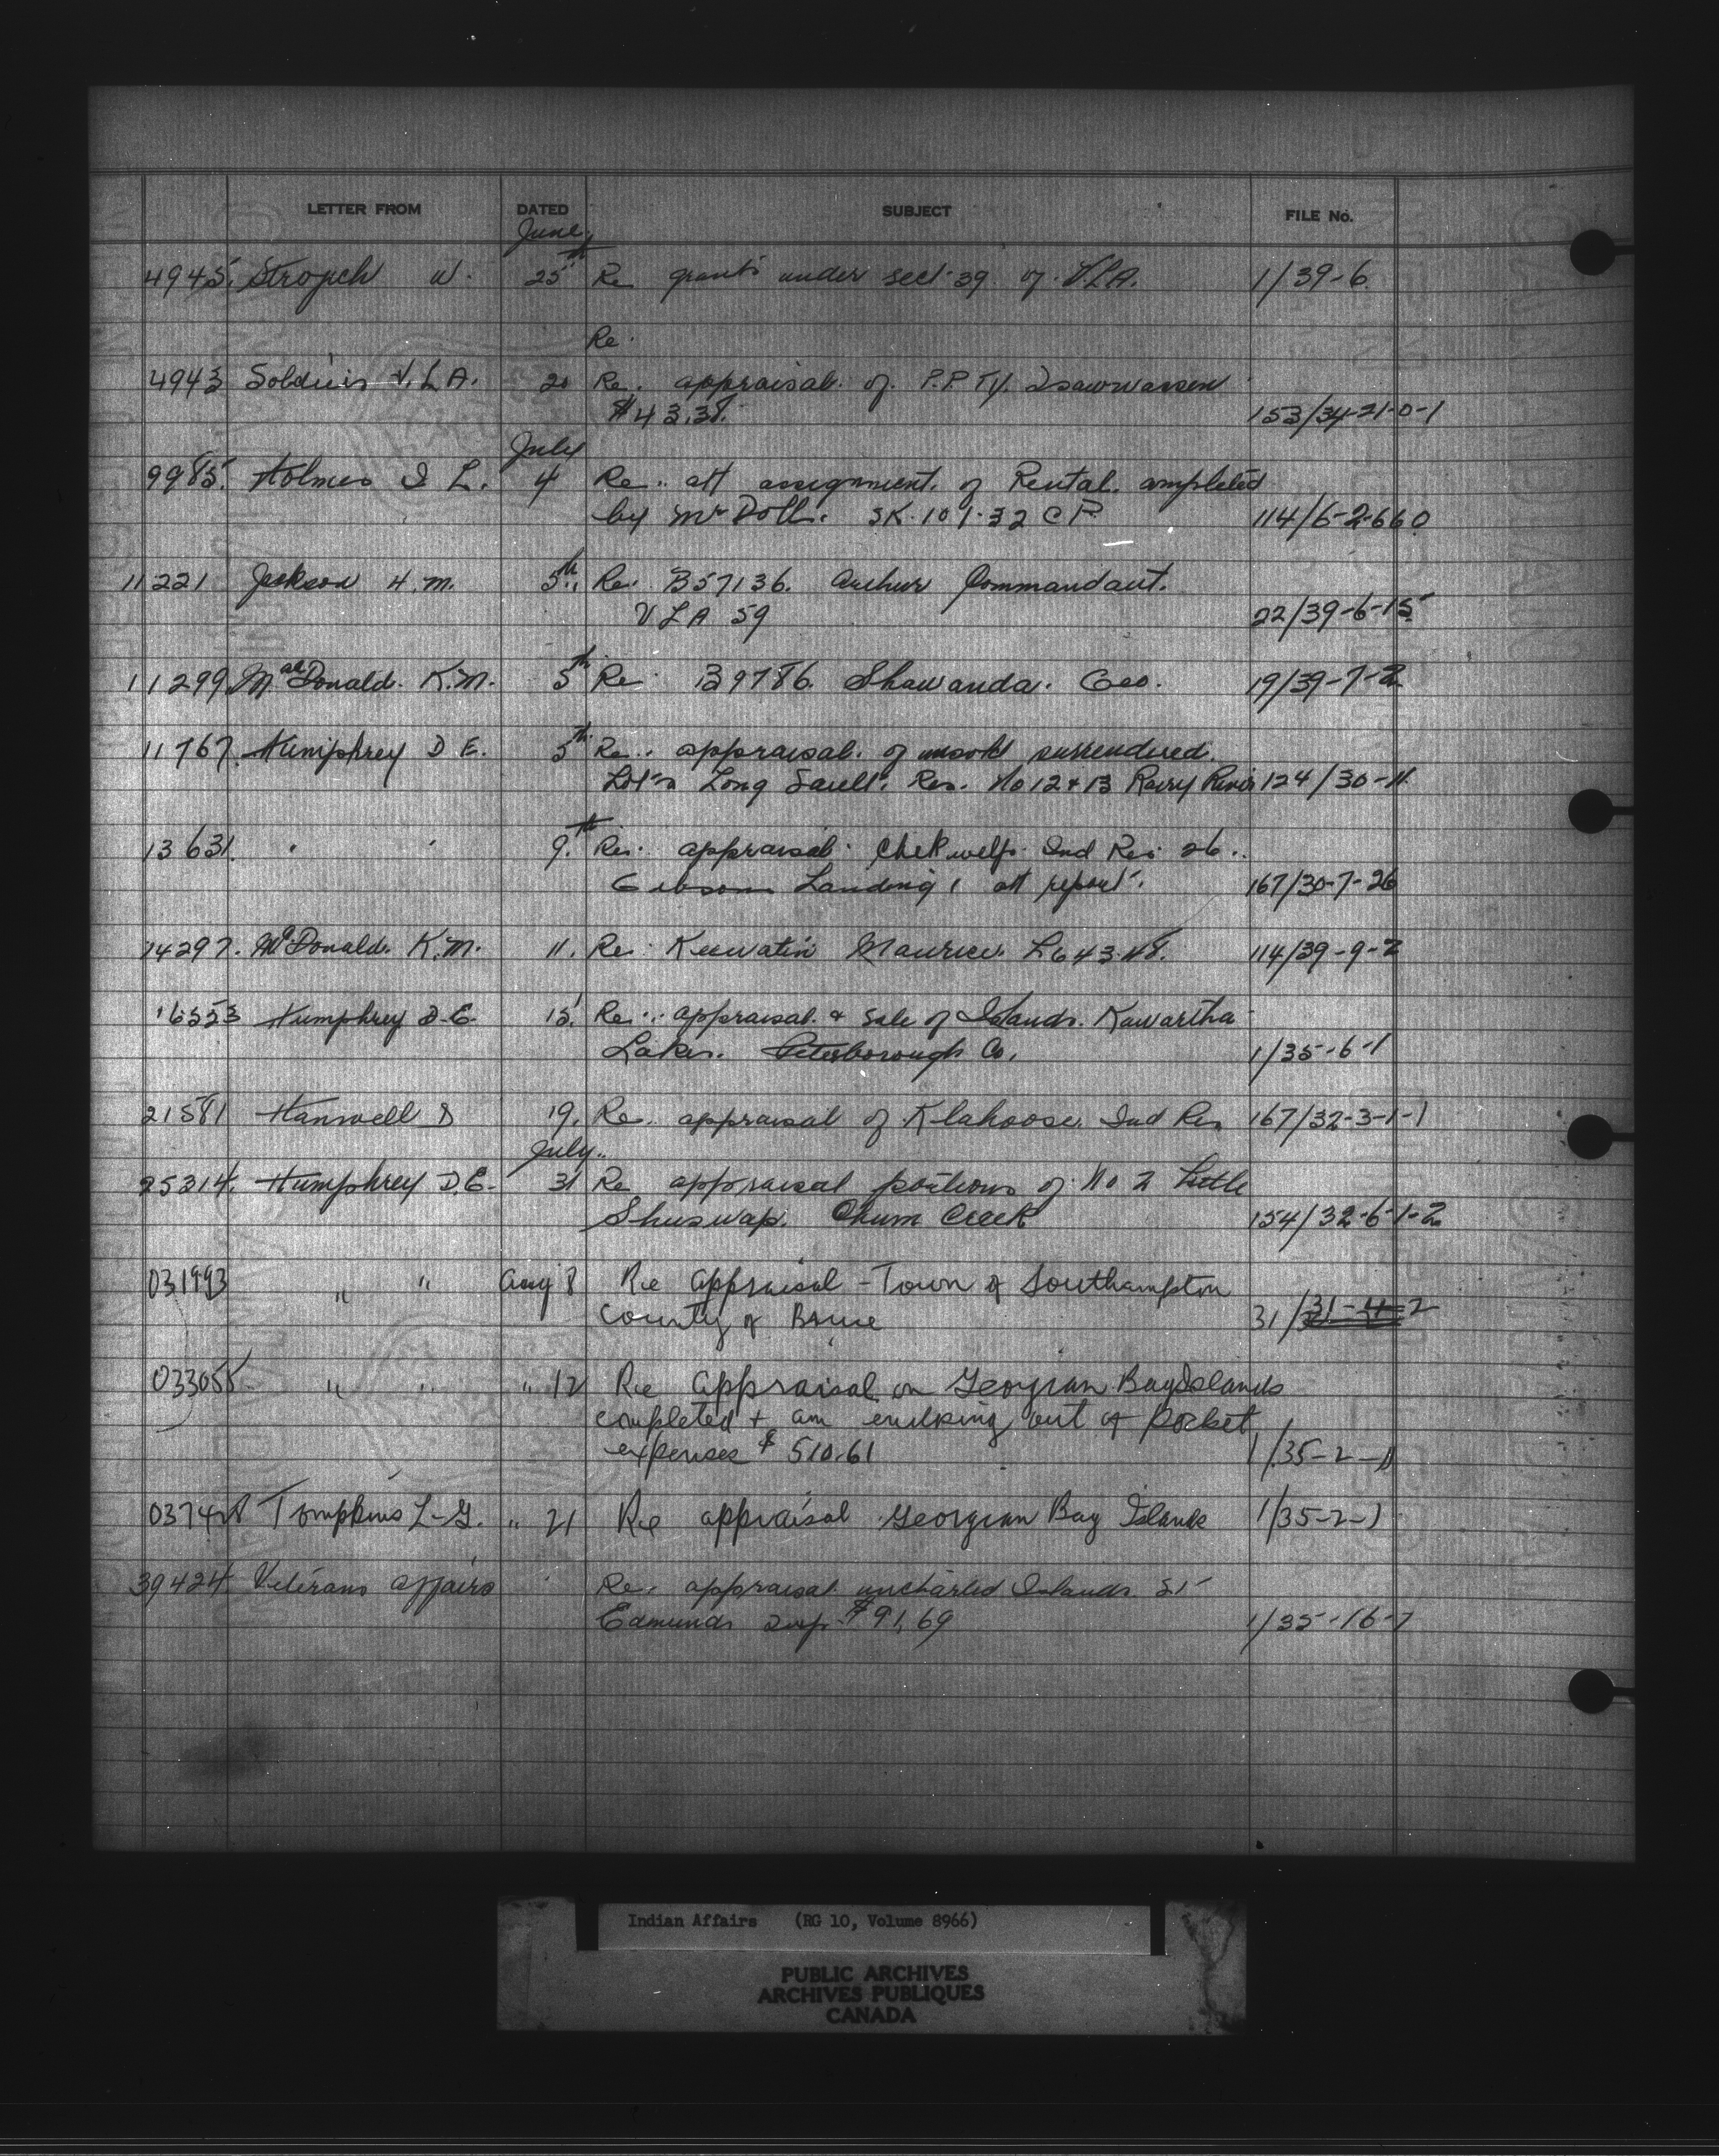 LETTER FROM DATED SUBJECT FILE No.
June
4945. Stropch W. 25th Re grants under sect 39 of V.L.A. 1/39-6
Re.
4943 Soldiers V.L.A. 20 Re. appraisal of P.PTY. Tsawwassen
$43.38. 153/34-21-0-1
July
9985. Holmes I L. 4 Re. att assignment of Rental completed
by Mr Doll. SK. 101-32 C P. 114/6-2-660
11221 Jackson H.M. 5th Re. B57136. Arthur Commandant.
VLA 59 22/39-6-15
11299 MacDonald. K.M. 5th Re. B9786. Shawanda. Geo. 19/39-7-2
11767. Humphrey D E. 5th Re. appraisal of unsold surrendered
Lots Long Sault. Res. No 12 & 13 Rainy River 124/30-11
13631. " " 9.th Re. appraisal Chekwelp Ind Res 26.
Gibsons Landing, att report. 167/30-7-26
14297. McDonald. K.M. 11. Re. Keewatin Maurice. L643.48. 114/39-9-2
16553 Humphrey D.E. 15. Re. appraisal & sale of Islands. Kawartha
Lakes. Peterborough Co. 1/35-6-1
21581 Hanwell D 19. Re. appraisal of Klahoose Ind Res 167/32-3-1-1
July
25314. Humphrey D.E. 31 Re appraisal portions of No 2 Little
Shuswap. Chum Creek 154/32-6-1-2
031993 " " Aug 8 Re Appraisal - Town of Southampton
County of Bruce 31/31-4-2
033055 " " " 12 Re Appraisal on Georgian Bay Islands
completed + am enclosing out of pocket
expenses $510.61 1/35-2-1
037428 Tompkins L-G. " 21 Re appraisal Georgian Bay Islands 1/35-2-1
39424 Veterans Affairs Re. appraisal uncharted Islands St
Edmunds Twp. $91,69 1/35-16-7
Indian Affairs (RG 10, Volume 8966)
PUBLIC ARCHIVES
ARCHIVES PUBLIQUES
CANADA